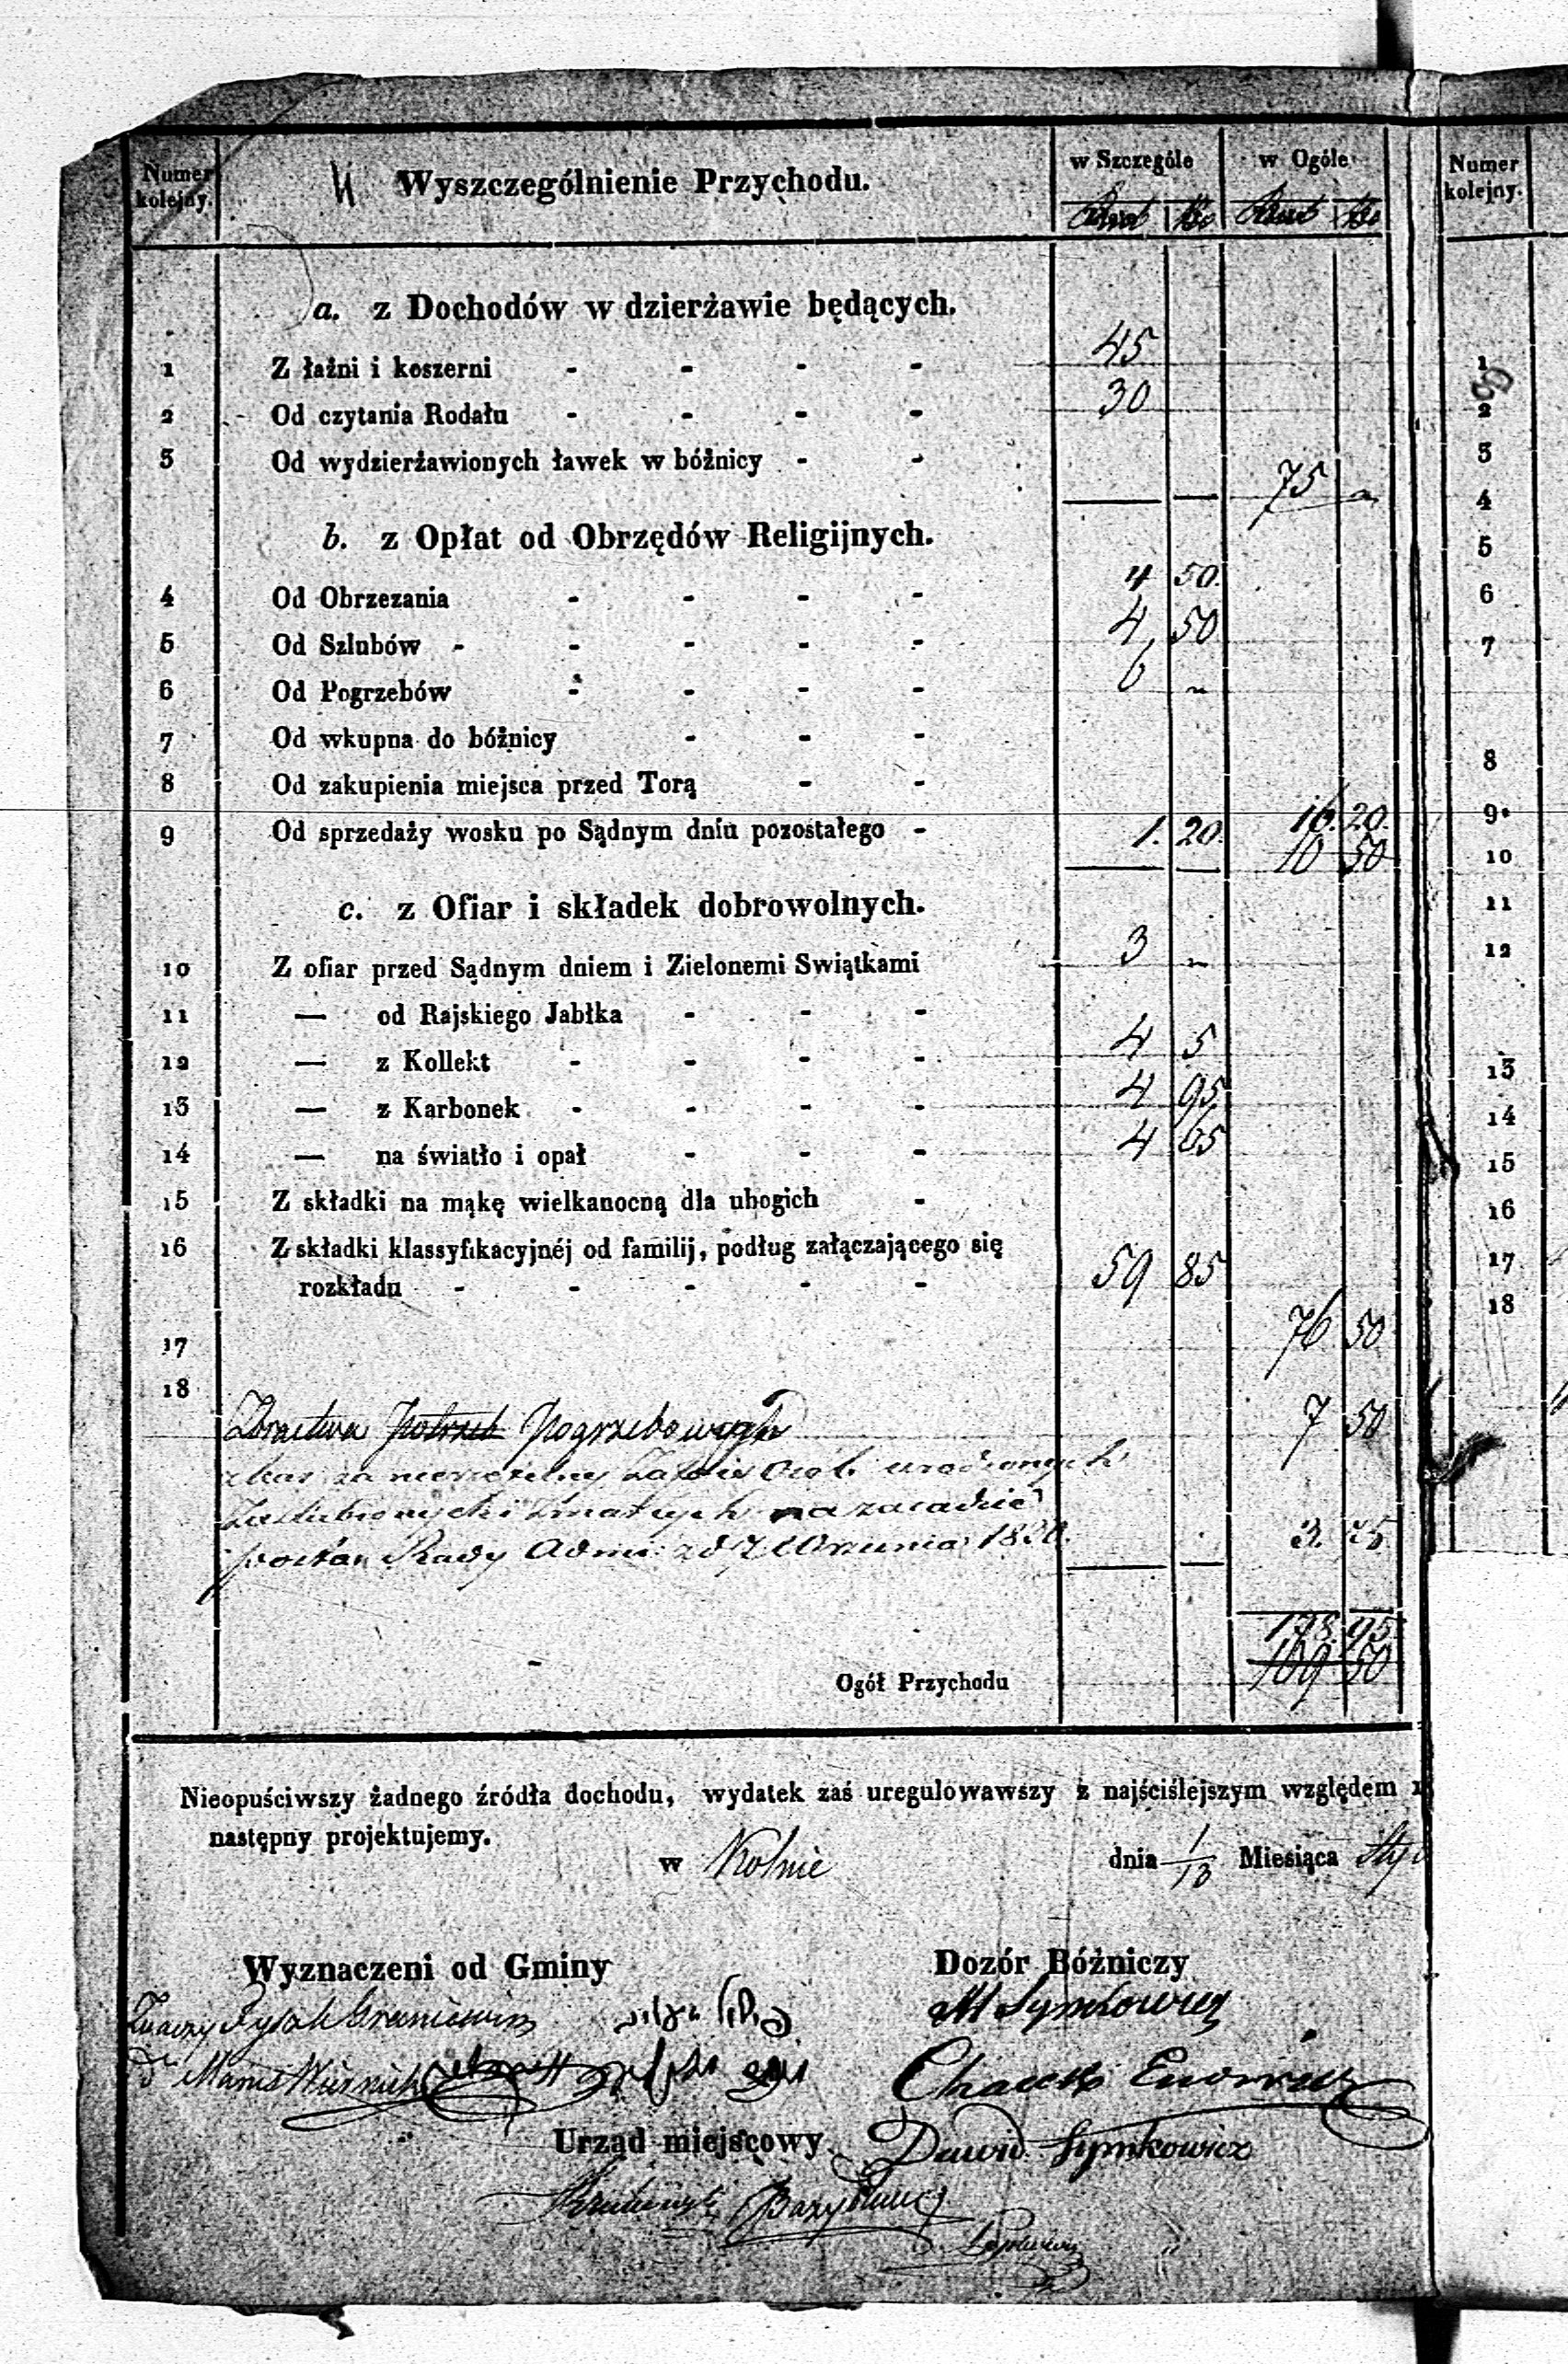 Numer kolejny. Wyszczególnienie Przychodu. w Szczególe w Ogóle Numer kolejny.
a. z Dochodów w dzierżawie będących.
1 Z łaźni i koszerni - - - - 45 1
2 Od czytania Rodału - - - - 30 2
3 Od wydzierżawionych ławek w bóźnicy - - 3
75 4
b. z Opłat od Obrzędów Religijnych. 5
4 Od Obrzezania - - - - 4 50 6
5 Od Szlubów - - - - - 4 50 7
6 Od Pogrzebów - - - - 6 -
7 Od wkupna do bóźnicy - - -
8 Od zakupienia miejsca przed Torą - - 8
9 Od sprzedaży wosku po Sądnym dniu pozostałego - 1. 20. 16. 20. 9
10 50 10
c. z Ofiar i składek dobrowolnych. 11
10 Z ofiar przed Sądnym dniem i Zielonemi Swiątkami 3 - 12
11 — od Rajskiego Jabłka - - -
12 — z Kollekt - - - - 4 5 13
13 — z Karbonek - - - - 4 95 14
14 — na światło i opał - - - 4 65 15
15 Z składki na mąkę wielkanocną dla ubogich - 16
16 Z składki klassyfikacyjnéj od familij, podług załączającego się 17
rozkładu - - - - - 59 85 18
17 76 50
18
Pogrzebowego 7 50
urodzonych
Zaślubionych i zmarłych na zasadzie
Rady Admi: z d 7 Września 1830. 3. 75
178. 95
Ogół Przychodu 169 50
Nieopuściwszy żadnego źródła dochodu, wydatek zaś uregulowawszy z najściślejszym względem
następny projektujemy.
w Kolnie dnia 1/13 Miesiąca Sty
Wyznaczeni od Gminy Dozór Bóźniczy
M Symkowicz
Dawid Symkowicz
Urząd miejscowy